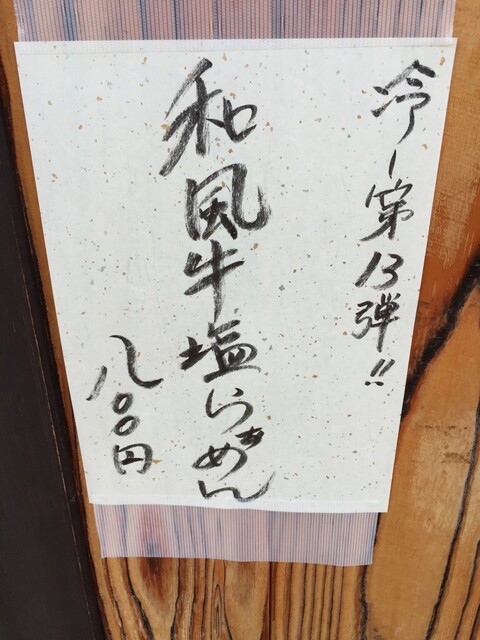 冷し第13弾!!
和風牛塩らぁめん
八〇〇円